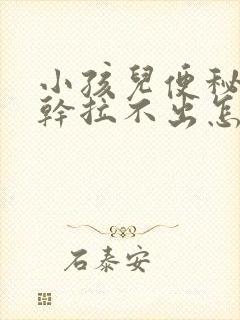 小孩兒便秘
幹拉不出怎
石泰安